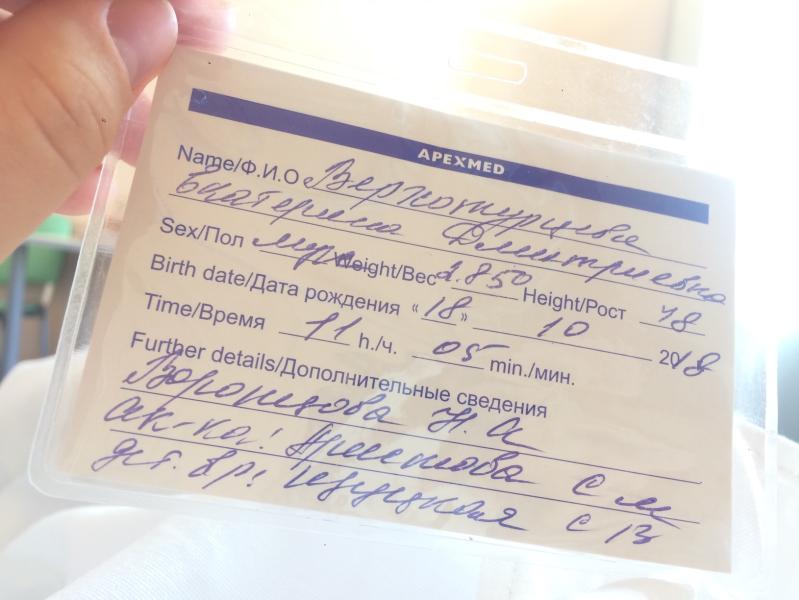 APEXMED
Name/Ф.И.О Верхотурцева
Екатерина Дмитриевна
Sex/Пол муж Weight/Вес 2.850 Height/Рост 48
Birth date/Дата рождения «18» 10 2018
Time/Время 11 h./ч. 05 min./мин.
Further details/Дополнительные сведения
Воронцова Н. А
ак-ка! С М
дет. вр! С В